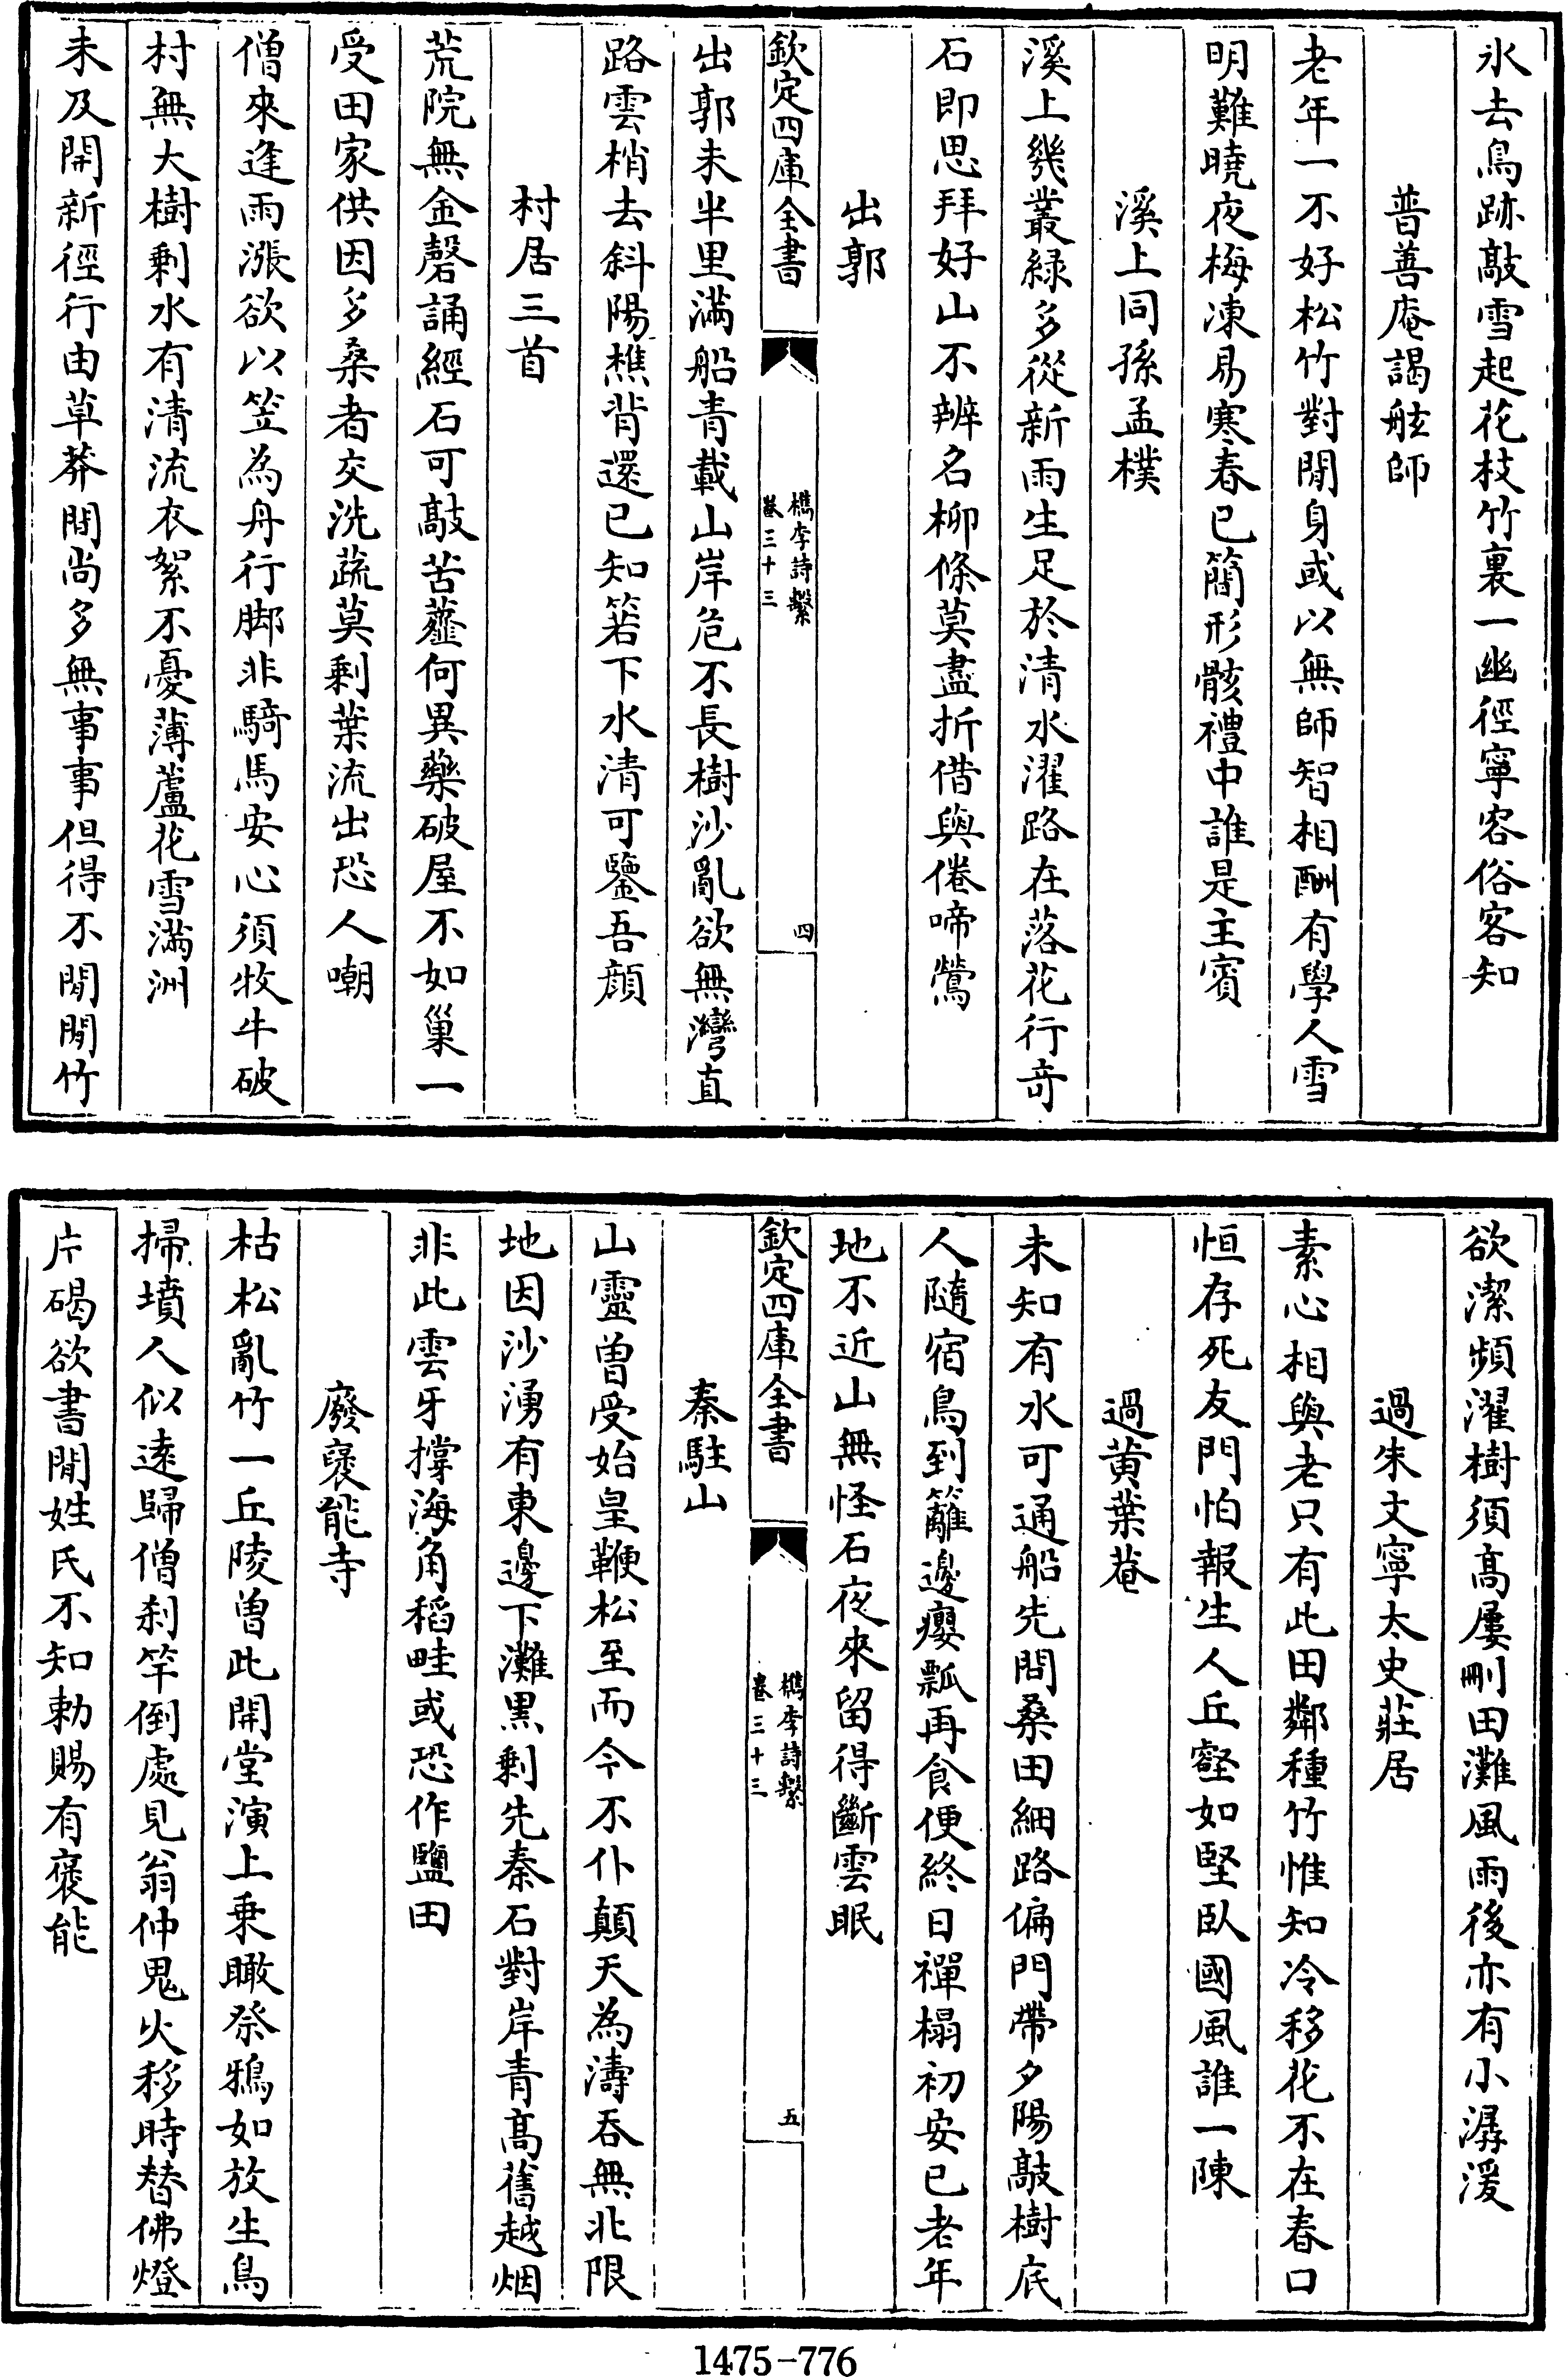 氷去鳥跡敲雪起花枝竹裏一幽徑寧容俗客知
普善庵謁舷師
老年一不好松竹對閒身或以無師智相酬有學人雪
明難曉夜梅凍易寒春已簡形骸禮中誰是主賓
溪上同孫孟樸
溪上幾叢緑多從新雨生足於清水濯路在落花行竒
石即思拜好山不辨名柳條莫盡折借與倦啼鶯
出郭
欽定四庫全書
檇李詩繫
卷三十三
四
出郭未半里滿船青載山岸危不長樹沙亂欲無灣直
路雲梢去斜陽樵背還已知箬下水清可鑒吾顔
村居三首
荒院無金磬誦經石可敲苦虀何異藥破屋不如巢一
受田家供因多桑者交洗蔬莫剩葉流出恐人嘲
僧來逢雨漲欲以笠為舟行脚非騎馬安心須牧牛破
村無大樹剩水有清流衣絮不憂薄蘆花雪滿洲
未及開新徑行由草莽間尚多無事事但得不閒閒竹
欲潔頻濯樹須髙屢刪田灘風雨後亦有小潺湲
過朱文寧太史莊居
素心相與老只有此田鄰種竹惟知冷移花不在春口
恒存死友門怕報生人丘壑如堅臥國風誰一陳
過黄葉菴
未知有水可通船先問桑田細路偏門帶夕陽敲樹底
人隨宿鳥到籬邊癭瓢再食便終日禪榻初安已老年
地不近山無怪石夜來留得斷雲眠
欽定四庫全書
檇李詩繫
卷三十三
五
秦駐山
山靈曽受始皇鞭松至而今不仆顛天為濤吞無北限
地因沙湧有東邊下灘黒剩先秦石對岸青髙舊越烟
非此雲牙撐海角稻畦或恐作鹽田
廢褒能寺
枯松亂竹一丘陵曽此開堂演上乗瞰祭鴉如放生鳥
掃墳人似逺歸僧刹竿倒處見翁仲鬼火移時替佛燈
片碣欲書閒姓氏不知勅賜有褒能
1475-776